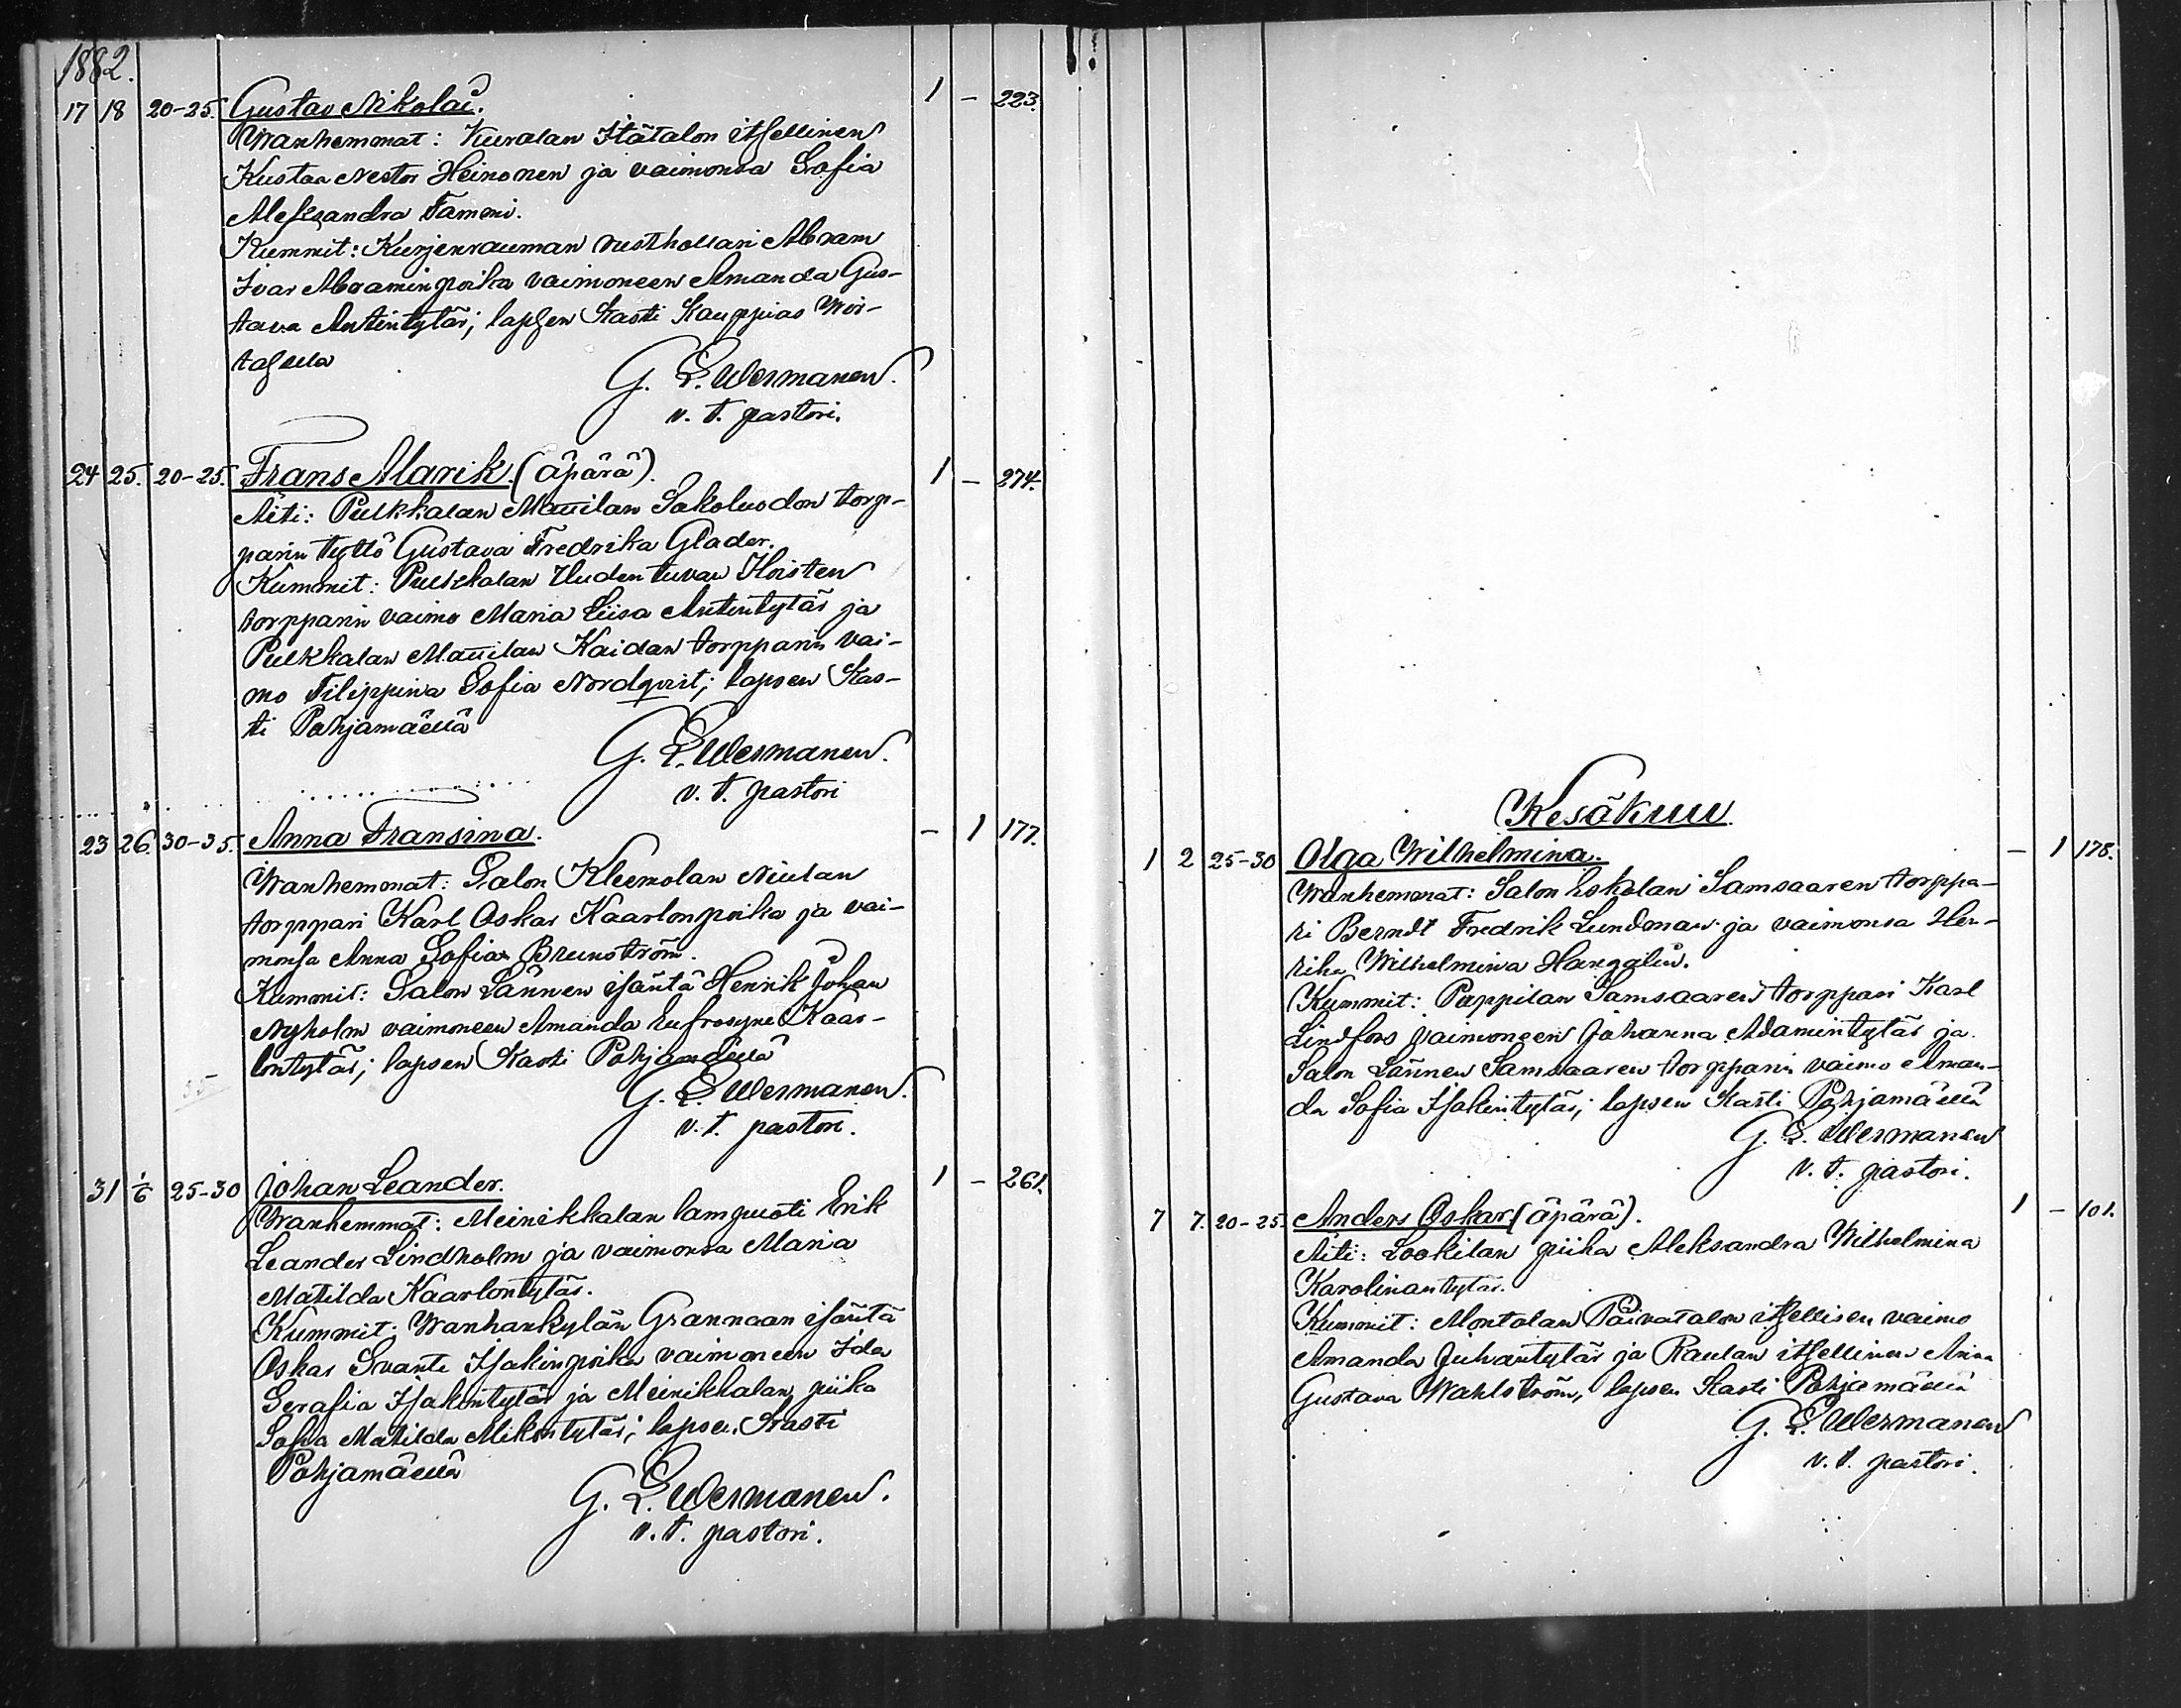 1882.
17 18 20-25. Gustav Nikolai. 1 - 223.
Wanhemmat: Kuralan Itätalon itsellinen
Kustaa Nestor Heinonen ja vaimonsa Sofia
Aleksandra Tammi.
Kummit: Kurjenrauman rusthollari Abram
Ivar Abramin poika vaimoneen Amanda Gus-
tava Antintytär; lapsen kasti Kauppias Wir-
tasella
G. E. Wermanen.
v. t. pastori.
24 25. 20-25. Frans Marik. (äpärä). 1 - 274.
Äiti: Pukkalan Maunilan Sakoluodon torp-
parin tyttö Gustava Fredrika Glader.
Kummit: Pukkalan Uudentuvan Hoisten
torpparin vaimo Maria Liisa Antintytär ja
Pukkalan Maunilan Kaidan torpparin vai-
mo Filippina Sofia Nordqvist; lapsen kas-
ti Pohjamäellä
G. E. Wermanen.
v. t. pastori
23 26. 30-35. Anna Fransina. - 1 177.
Wanhemmat: Salon Kleemolan Niulan
torppari Karl Oskar Kaarlonpoika ja vai-
monsa Anna Sofia Brunström.
Kummit: Salon Lännen isäntä Henrik Johan
Nyholm vaimoneen Amanda Eufrosyne Kaar-
lontytär; lapsen kasti Pohjamäellä
35
G. E. Wermanen.
v. t. pastori.
31 1/6 25-30 Johan Leander. 1 - 261.
Wanhemmat: Meinikkalan lampuoti Erik
Leander Lindholm ja vaimonsa Maria
Matilda Kaarlontytär.
Kummit: Wanhankylän Grannaan isäntä
Oskar Svante Isakinpoika vaimoneen Ida
Serafia Isakintytär ja Meinikkalan piika
Sofia Matilda Mikontytär; lapsen kasti
Pohjamäellä
G. E. Wermanen.
v. t. pastori.
Kesäkuu
1 2 25-30 Olga Wilhelmina. - 1 178.
Wanhemmat: Salon Eskolan Samsaaren torppa-
ri Berndt Fredrik Lundman ja vaimonsa Hen-
rika Wilhelmina
Kummit: Pappilan Samsaaren torppari Karl
Lindfors vaimoneen Johanna Adamintytär ja
Salon Lännen Samsaaren torpparin vaimo Aman-
da Sofia Isakintytär; lapsen kasti Pohjamäellä
G. E. Wermanen
v. t. pastori.
7 7. 20-25. Anders Oskar (äpärä). 1 - 101.
Äiti: piika Aleksandra Wilhelmina
Karolinantytär.
Kummit: Montolan Päivätalon itsellisen vaimo
Amanda Juhantytär ja Raulan itsellinen Anna
Gustava Wahlström, lapsen kasti Pohjamäellä
G. E. Wermanen
v. t. pastori.